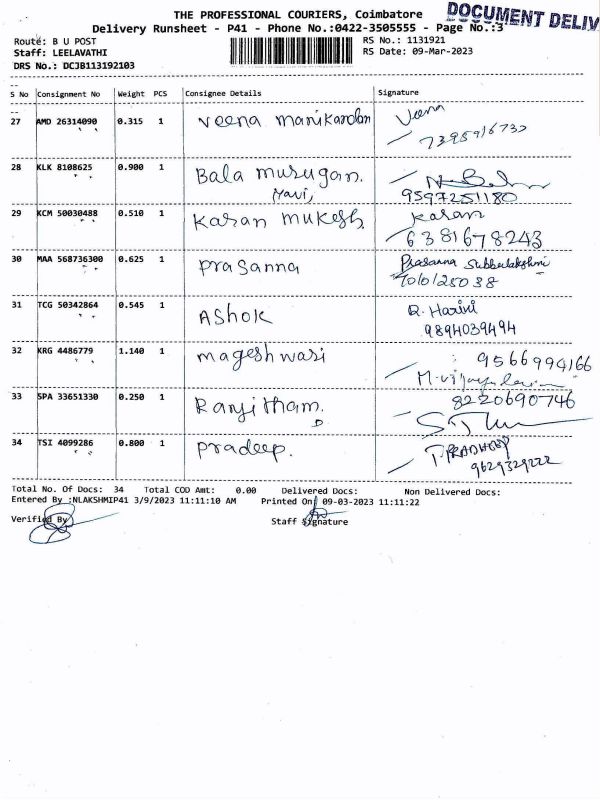 THE PROFESSIONAL COURIERS, Coimbatore
DOCUMENT DELIV
Delivery Runsheet - P41 - Phone No.:0422-3505555 - Page No.:3
Route: B U POST
RS No.: 1131921
Staff: LEELAVATHI
RS Date: 09-Mar-2023
DRS No.: DCJB113192103
S No Consignment No Weight PCS Consignee Details Signature
27 AMD 26314090 0.315 1 Veena manikandan Veena
7395916732
28 KLK 8108625 0.900 1 Bala murugan.
9597251180
29 KCM 50030488 0.510 1 Karan mukesh Karan
6381678243
30 MAA 568736300 0.625 1 prasanna Prasanna Subbulakshmi
7010125038
31 TCG 50342864 0.545 1 Ashok R. Harini
9894039494
32 KRG 4486779 1.140 1 mageshwari 9566994166
33 SPA 33651330 0.250 1 Ranjitham. 8220690746
34 TSI 4099286 0.800 1 pradeep.
9629329222
Total No. Of Docs: 34 Total COD Amt: 0.00 Delivered Docs: Non Delivered Docs:
Entered By :NLAKSHMIP41 3/9/2023 11:11:10 AM Printed On: 09-03-2023 11:11:22
Verified By
Staff Signature